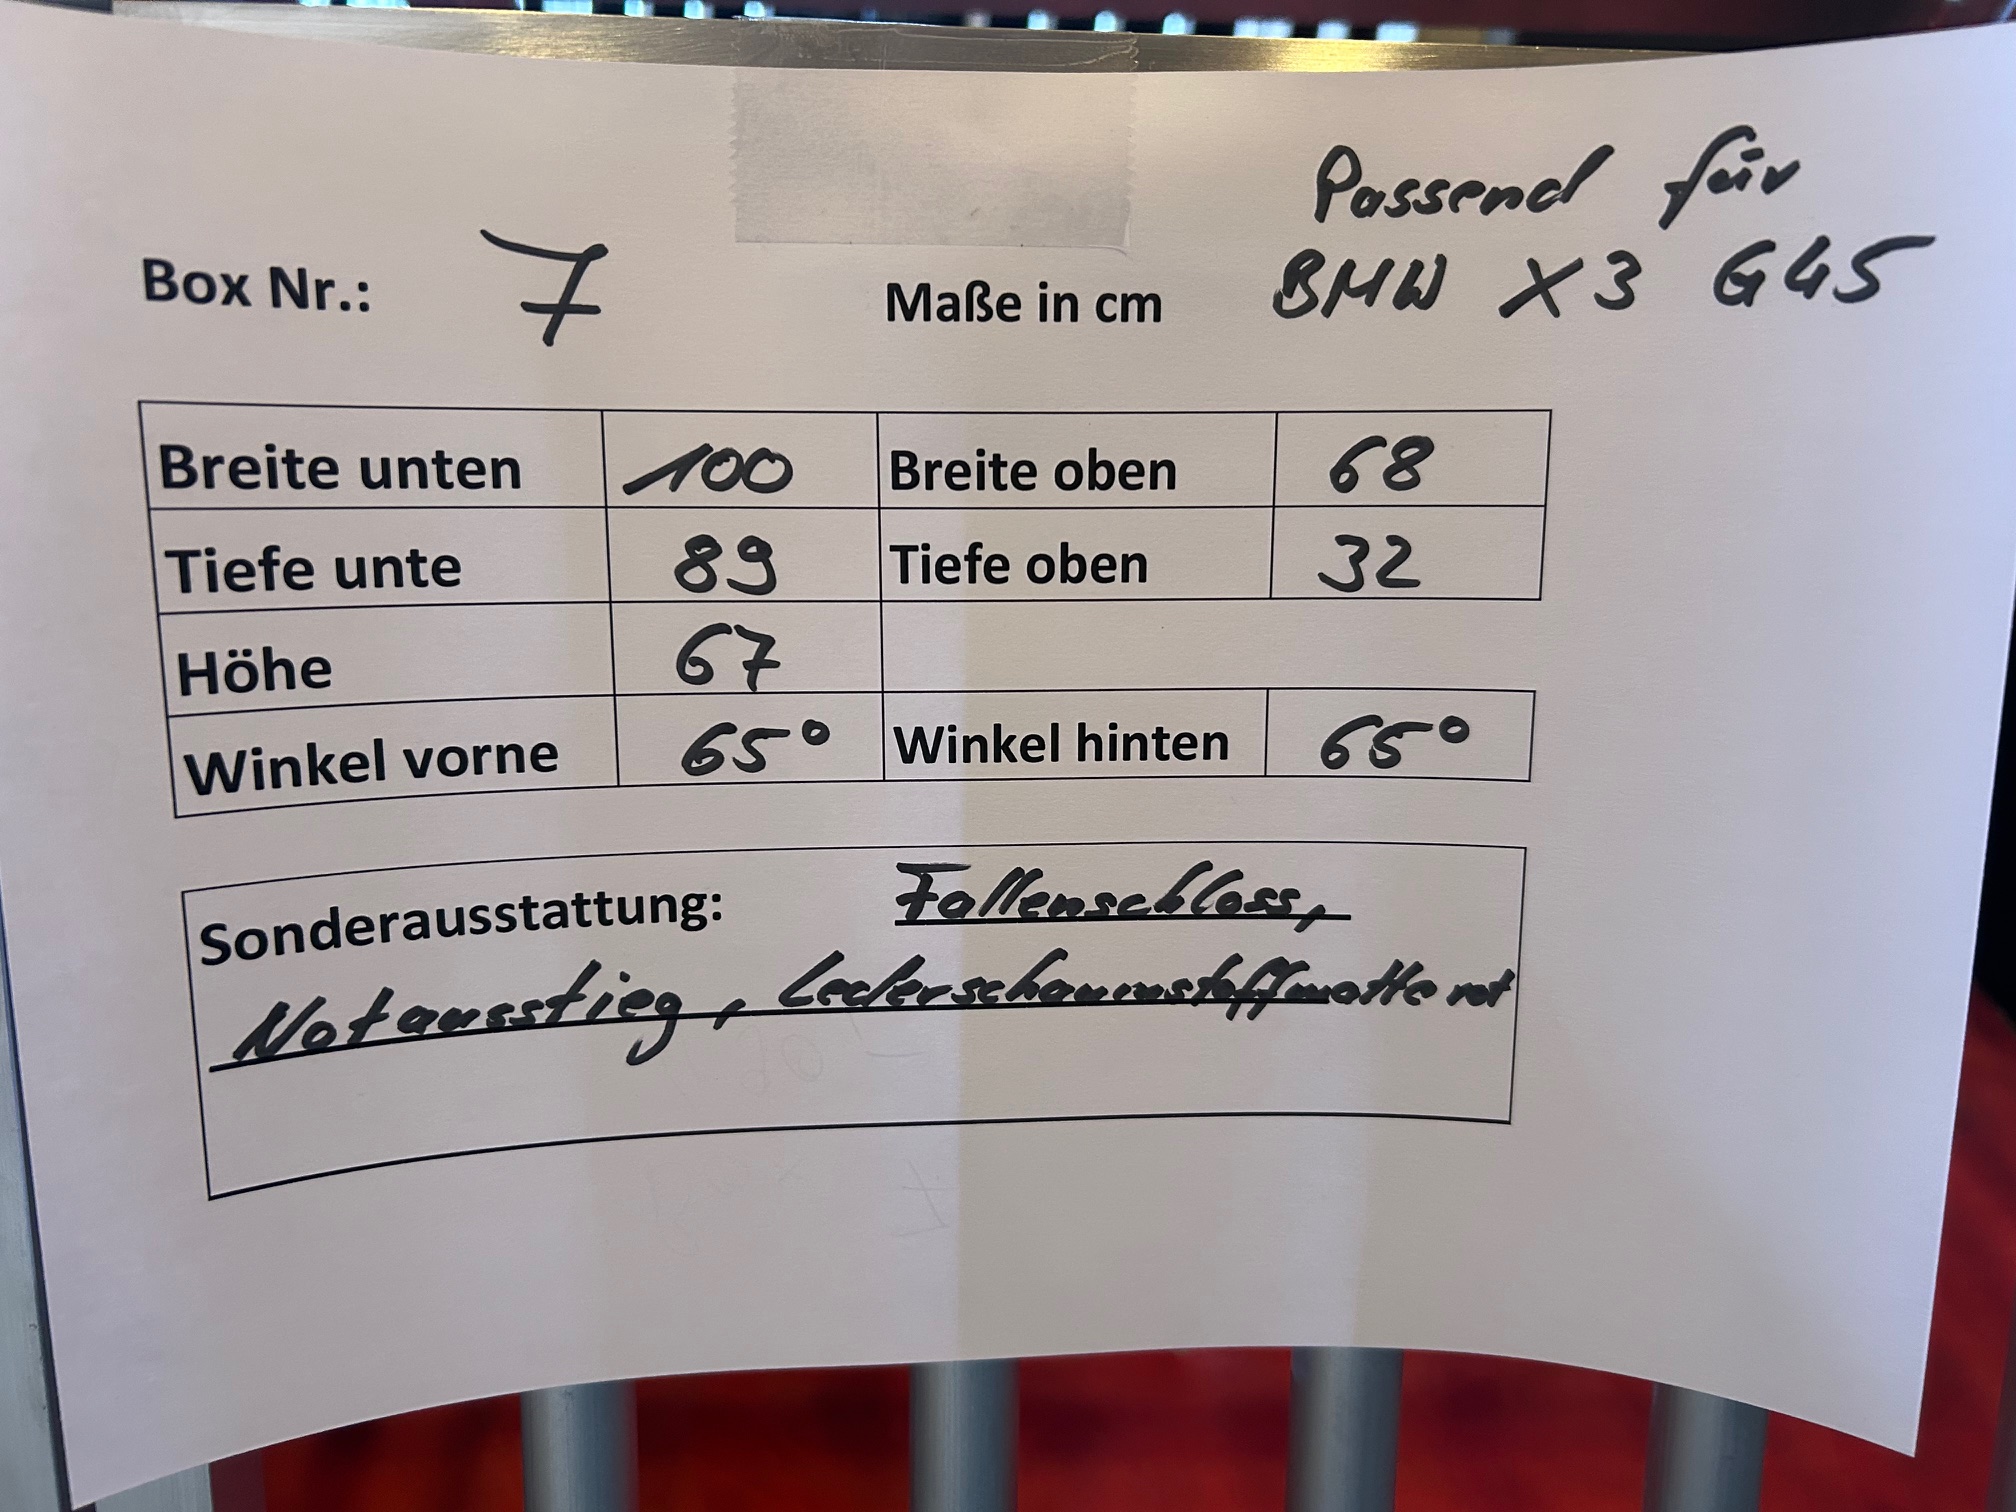 Passend für
Box Nr.: 7 Maße in cm BMW X3 G45
Breite unten 100 Breite oben 68
Tiefe unte 89 Tiefe oben 32
Höhe 67
Winkel vorne 65° Winkel hinten 65°
Sonderausstattung: Fallenschloss,
Notausstieg, Lederschaumstoffmatte rot